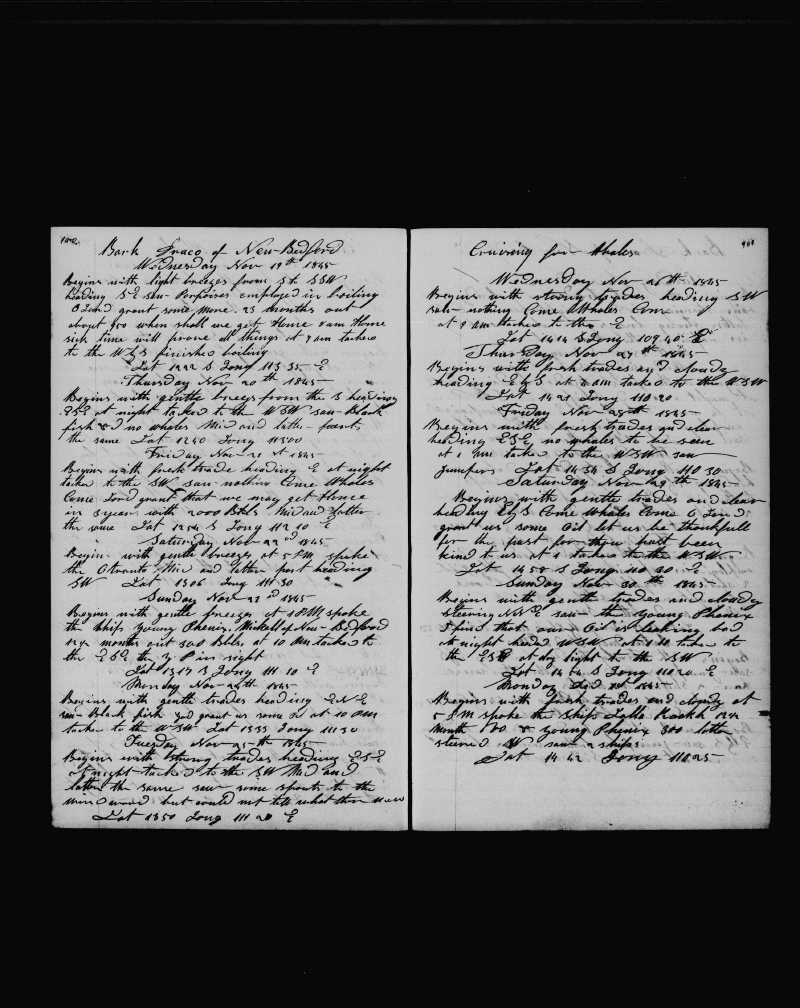 Bark Draco of New-Bedford
Wednesday Nov 19th 1845
Begins with light breezes from S to SSW
heading SE saw Porpoises employed in boiling
O Lord grant some more. 25 months out
about 550 when shall we get Home I am Home
sick time will prove all things at 7 am tacked
to the WLS finished boiling
Lat 1222 S Long 113 35 E
Thursday Nov 20th 1845
Begins with gentle breezes from the S heading
ESE at night tacked to the WSW saw Black
fish & no whales Mid and latter parts
the same Lat 1240 Long 11300
Friday Nov 21st 1845
Begins with fresh trade heading E at night
tacked to the SW saw nothing Come Whales
Come Lord grant that we may get Home
in 3 years with 2000 Bbls Mid and Latter
the same Lat 1254 S Long 112 10 E
Saturday Nov 22nd 1845
Begins with gentle breezes at 5 PM spoke
the Otranto Mid and latter part heading
SW Lat 1306 Long 111 30
Sunday Nov 23rd 1845
Begins with gentle breezes at 1 PM spoke
the Ship Young Phenix. Mickell of New-Bedford
12½ months out 300 Bbls. at 10 Am tacked to
the ESE the Y P in sight
Lat 1317 S Long 111 10 E
Monday Nov 24th 1845
Begins with gentle trades heading E N E
saw Black fish God grant us some Oil at 10 Am
tacked to the WSW Lat 1333 Long 111 30
Tuesday Nov 25th 1845
Begins with strong trades heading ESE
at night tacked to the SW Mid and
latter the same saw some spouts to the
wind ward but could not tell what they were
Lat 1350 Long 111 20 E
Cruising for Whales
Wednesday Nov 26th 1845
Begins with strong trades heading SW
saw nothing Come Whales Come
at 1 am tacked to the E
Lat 1414 S Long 109 40 E
Thursday Nov 27th 1845
Begins with fresh trades and cloudy
heading E&S at 2 am tacked to the WSW
Lat 1421 Long 110 20
Friday Nov 28th 1845
Begins with fresh trades and clear
heading ESE no whales to be seen
at 1 am tacked to the WSW saw
jumpers Lat 14 34 S Long 110 30
Saturday Nov 29th 1845
Begins with gentle trades and clear
heading E&S Come Whales Come O Lord
grant us some Oil let us be thankfull
for the past for thou hast been
kind to us at 1 tacked to the WSW
Lat 1458 S Long 110 30 E
Sunday Nov 30th 1845
Begins with gentle trades and cloudy
steering saw the Young Phenix
I find that our Oil is leaking bad
at night headed WSW at 1 tacked to
the ESE at day light to the SW
Lat 1454 S Long 110 20 E
Monday Dec 1st 1845
Begins with fresh trades and cloudy at
5 PM spoke the Ships Lalla Rookh
months & Young Phenix 300 latter
steered W saw 2 ships
Lat 14 42 Long 110 25